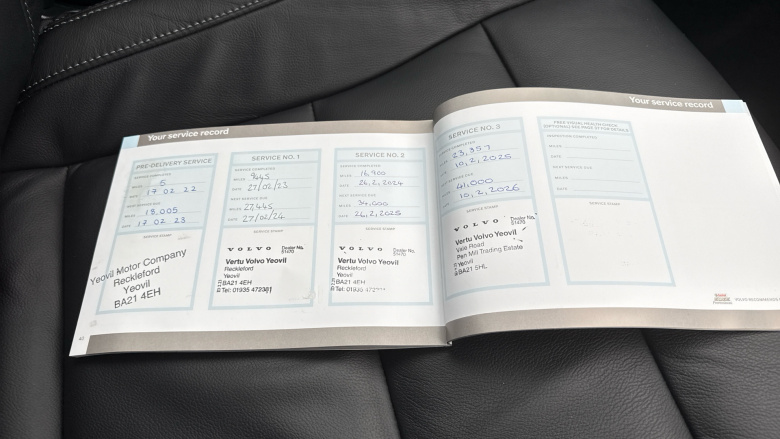 Your service record
PRE-DELIVERY SERVICE
SERVICE COMPLETED
MILES 5
DATE 17 02 22
NEXT SERVICE DUE
MILES 18,005
DATE 17 02 23
SERVICE STAMP
Yeovil Motor Company
Reckleford
Yeovil
BA21 4EH
SERVICE NO. 1
SERVICE COMPLETED
MILES 9445
DATE 27/02/23
NEXT SERVICE DUE
MILES 27,445
DATE 27/02/24
SERVICE STAMP
VOLVO Dealer No. 51470
Vertu Volvo Yeovil
Reckleford
Yeovil
BA21 4EH
Tel: 01935
SERVICE NO. 2
SERVICE COMPLETED
MILES 16,900
DATE 26,2,2024
NEXT SERVICE DUE
MILES 34,000
DATE 26,2,2025
SERVICE STAMP
VOLVO Dealer No. 51470
Vertu Volvo Yeovil
Reckleford
Yeovil
BA21 4EH
Tel: 01935
Your service record
SERVICE NO. 3
SERVICE COMPLETED
MILES 23,357
DATE 10,2,2025
NEXT SERVICE DUE
MILES 41,000
DATE 10,2,2026
SERVICE STAMP
VOLVO Dealer No. 51470
Vertu Volvo Yeovil
Vale Road
Pen Mill Trading Estate
Yeovil
BA21 5HL
FREE VISUAL HEALTH CHECK
(OPTIONAL) SEE PAGE 37 FOR DETAILS
INSPECTION COMPLETED
MILES
DATE
NEXT SERVICE DUE
MILES
DATE
SERVICE STAMP
VOLVO RECOMMENDS